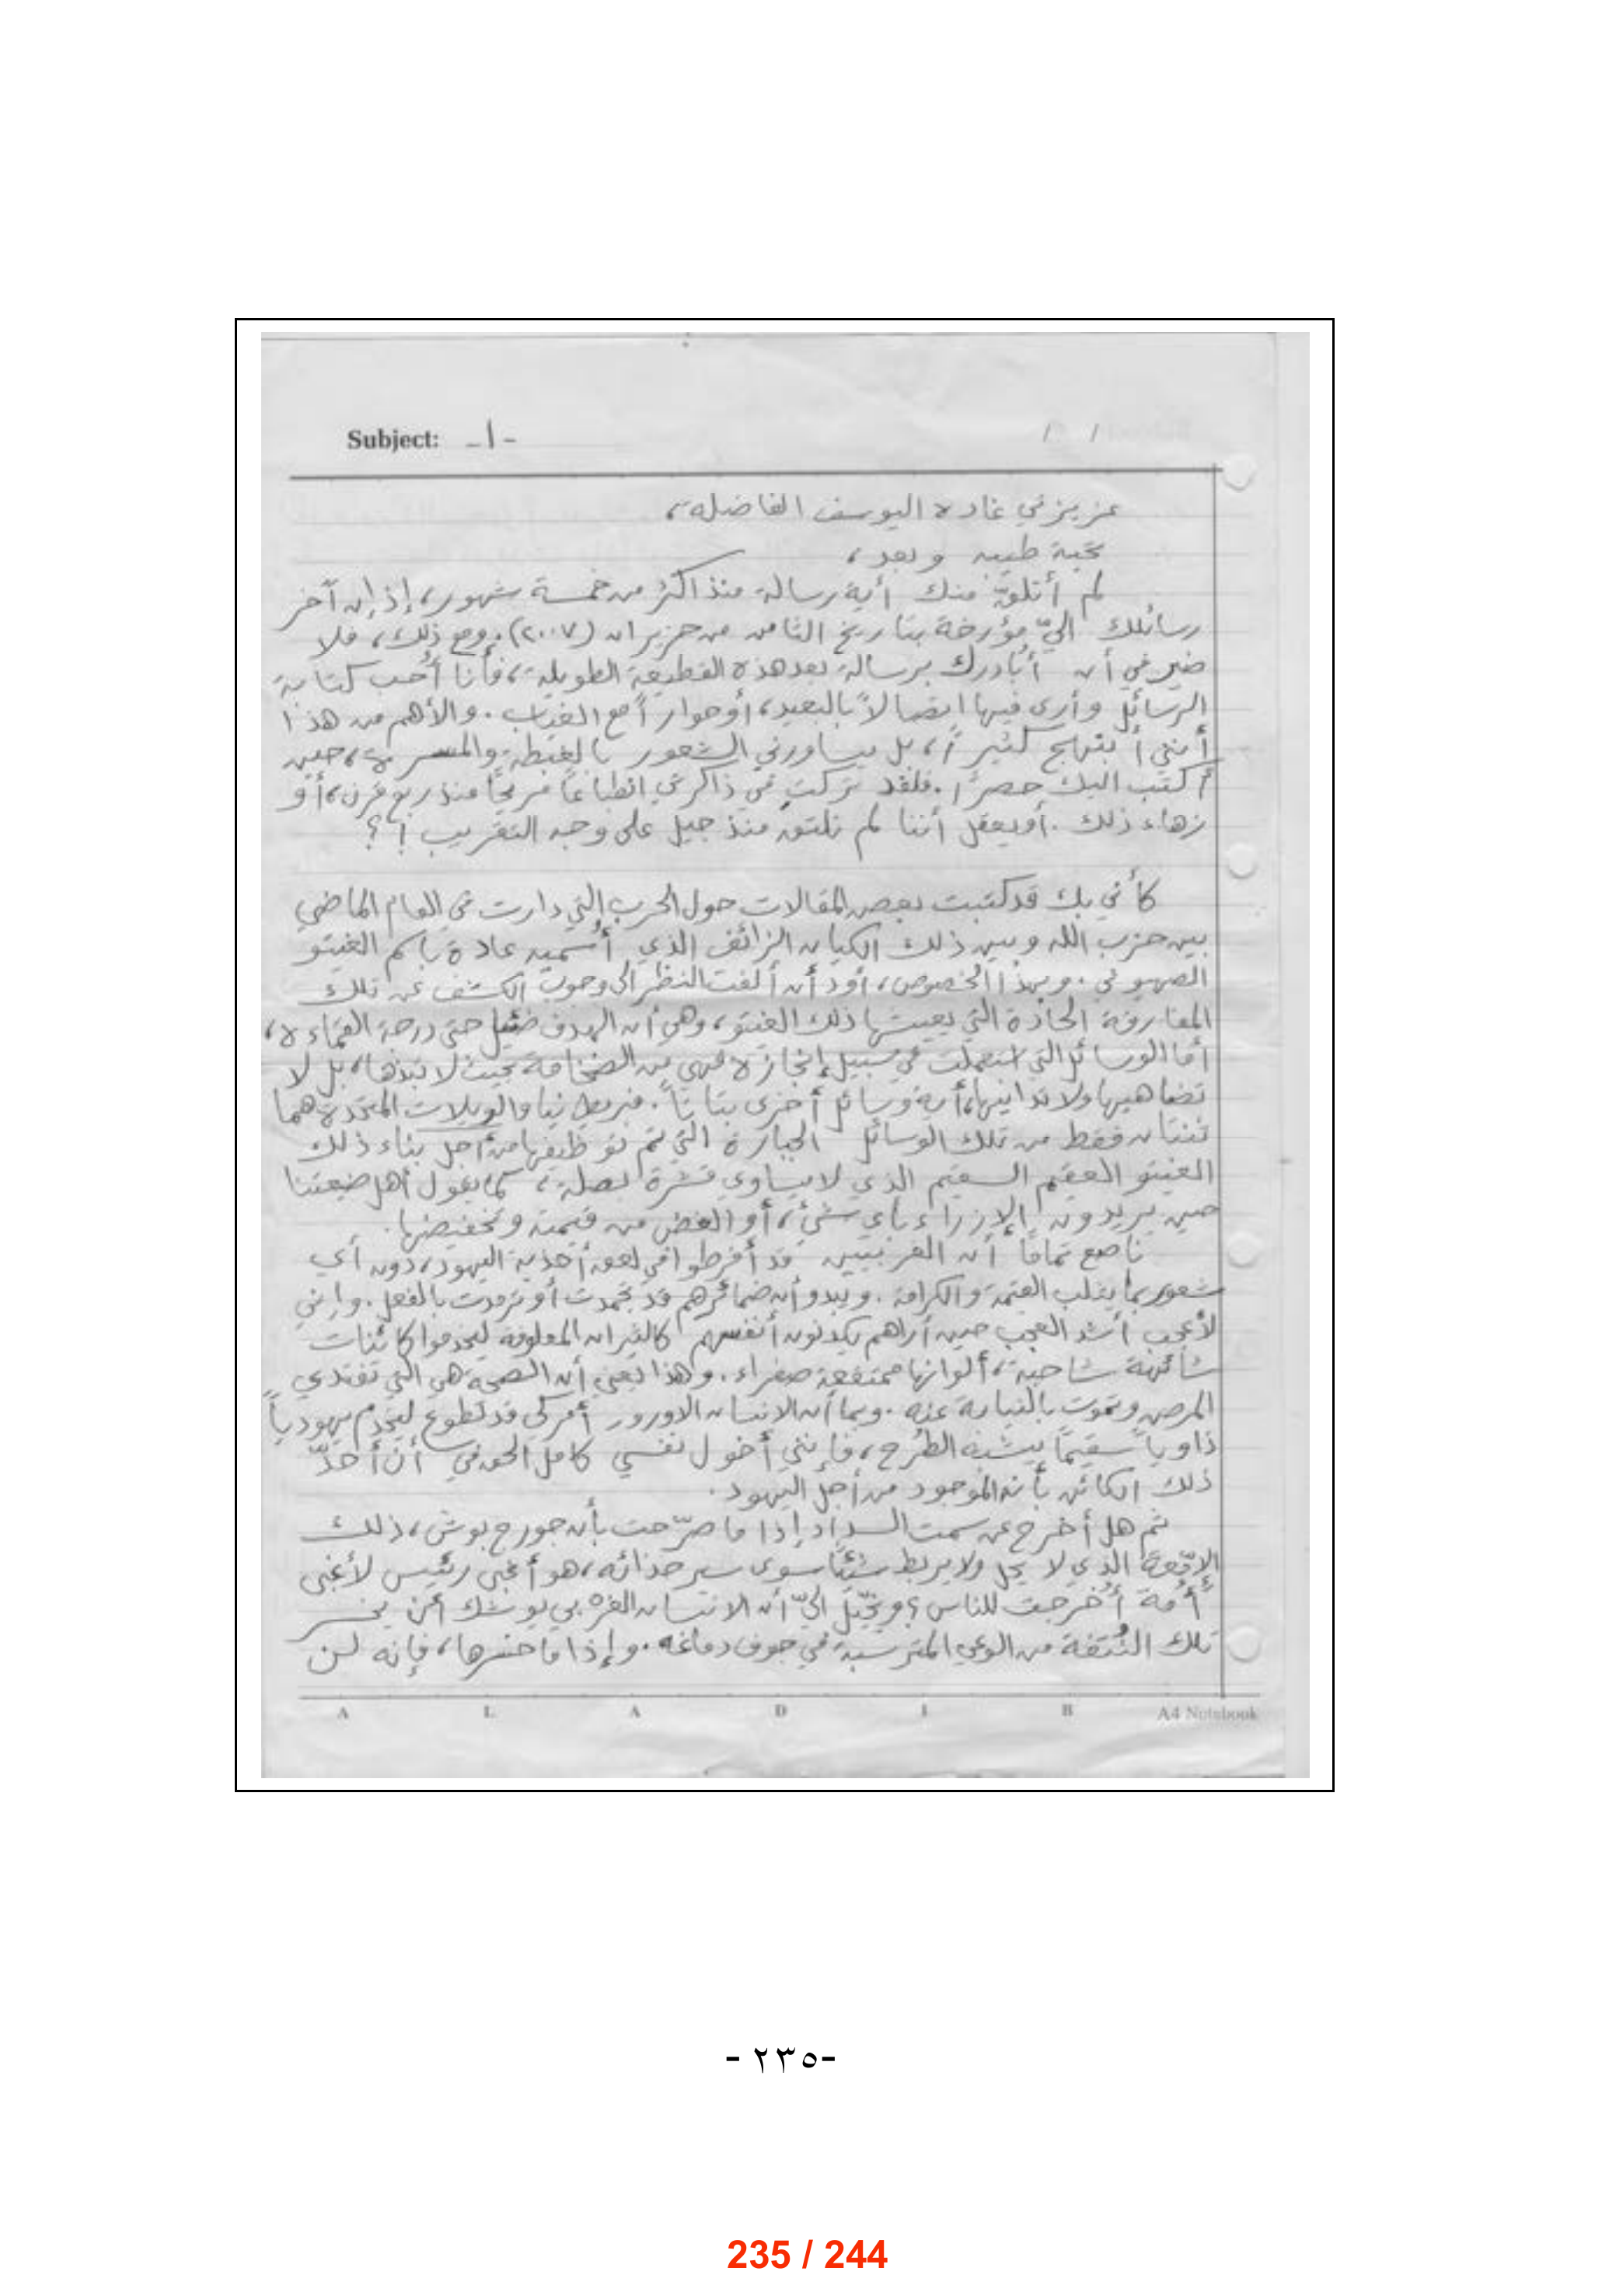 Subject: -١-
عزيزتي غادة اليوسف الفاضلة،
تحية طيبة وبعد،
لم أتلقّ منك أية رسالة منذ اكثر من خمسة شهور، إذ إن آخر
رسائلك اليّ مؤرخة بتاريخ الثامن من حزيران (٢٠٠٧). ومع ذلك، فلا
ضير في أن أبادرك برسالة بعد هذه القطيعة الطويلة، فأنا أُحب كتابة
الرسائل وأرى فيها اتصالاً بالبعيد، أو حواراً مع الغياب. والأهم من هذا
أنني أبتهج كثيراً، بل يساورني الشعور بالغبطة والمسرة، حين
أكتب اليك حصراً. فلقد تركتِ في ذاكرتي انطباعاً مريحاً منذ ربع قرن، أو
زهاء ذلك. أويعقل أننا لم نلتق منذ جيل على وجه التقريب !؟
كأني بك قد كتبت بعض المقالات حول الحرب التي دارت في العام الماضي
بين حزب الله وبين ذلك الكيان الزائف الذي أُسميه عادة باسم الغيتو
الصهيوني. وبهذا الخصوص، أودّ أن ألفت النظر الى وجوب الكشف عن تلك
المفارقة الحادة التي يعيشها ذلك الغيتو، وهي أن الهدف ضئيل حتى درجة القماءة،
أما الوسائل التي استعملت في سبيل إنجازه فهي من الضخامة بحيث لا تبذها، بل لا
تضاهيها ولا تدانيها، أية وسائل أخرى بتاتاً. فبريطانيا والويلات المتحدة هما
ثنتان فقط من تلك الوسائل الجبارة التي تم توظيفها من أجل بناء ذلك
الغيتو العقيم السقيم الذي لا يساوي قشرة بصلة، كما يقول أهل ضيعتنا
حين يريدون الإزراء بأي شيئ، أو الغض من قيمته وتخفيضها.
ناصع تماماً أن الغربيين قد أفرطوا في لعق أحذية اليهود، دون أي
شعور بما يثلب القيمة والكرامة. ويبدو أن ضمائرهم قد تجمدت أو ترمدت بالفعل. وإنني
لأعجب أشد العجب حين أراهم يكدنون أنفسهم كالثيران المعلوفة ليخدموا كائنات
شائهة شاحبة، ألوانها ممتقعة صفراء. وهذا يعني أن الصحة هي التي تفتدي
المرض وتموت بالنيابة عنه. وبما أن الانسان الاورو أمركي قد تطوع ليخدم يهودياً
ذاوياً سقيماً يشبه الطُرح، فإنني أخول نفسي كامل الحق في أن أحدّ
ذلك الكائن بأنه الموجود من أجل اليهود.
ثم هل أخرج عن سمت السداد إذا ما صرّحت بأن جورج بوش، ذلك
الإمّعة الذي لا يحل ولا يربط شيئاً سوى سير حذائه، هو أغبى رئيس لأغبى
أُمة أُخرجت للناس؟ ويخيّل اليّ أن الانسان الغربي يوشك أن يخسر
تلك النُتفة من الوعي المترسبة في جوف دماغه. وإذا ما خسرها، فإنه لن
A L A D I B A4 Notebook
- ٢٣٥-
235 / 244